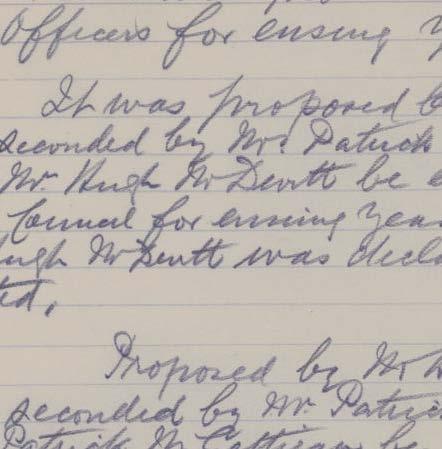 Officers for ensing y
It was proposed b
seconded by Mr. Patrick
Mr. Hugh McDevitt be e
Council for ensuing year
ugh McDevitt was decla
ted.
Proposed by Mr
seconded by Mr. Patric
Patrick Mc be